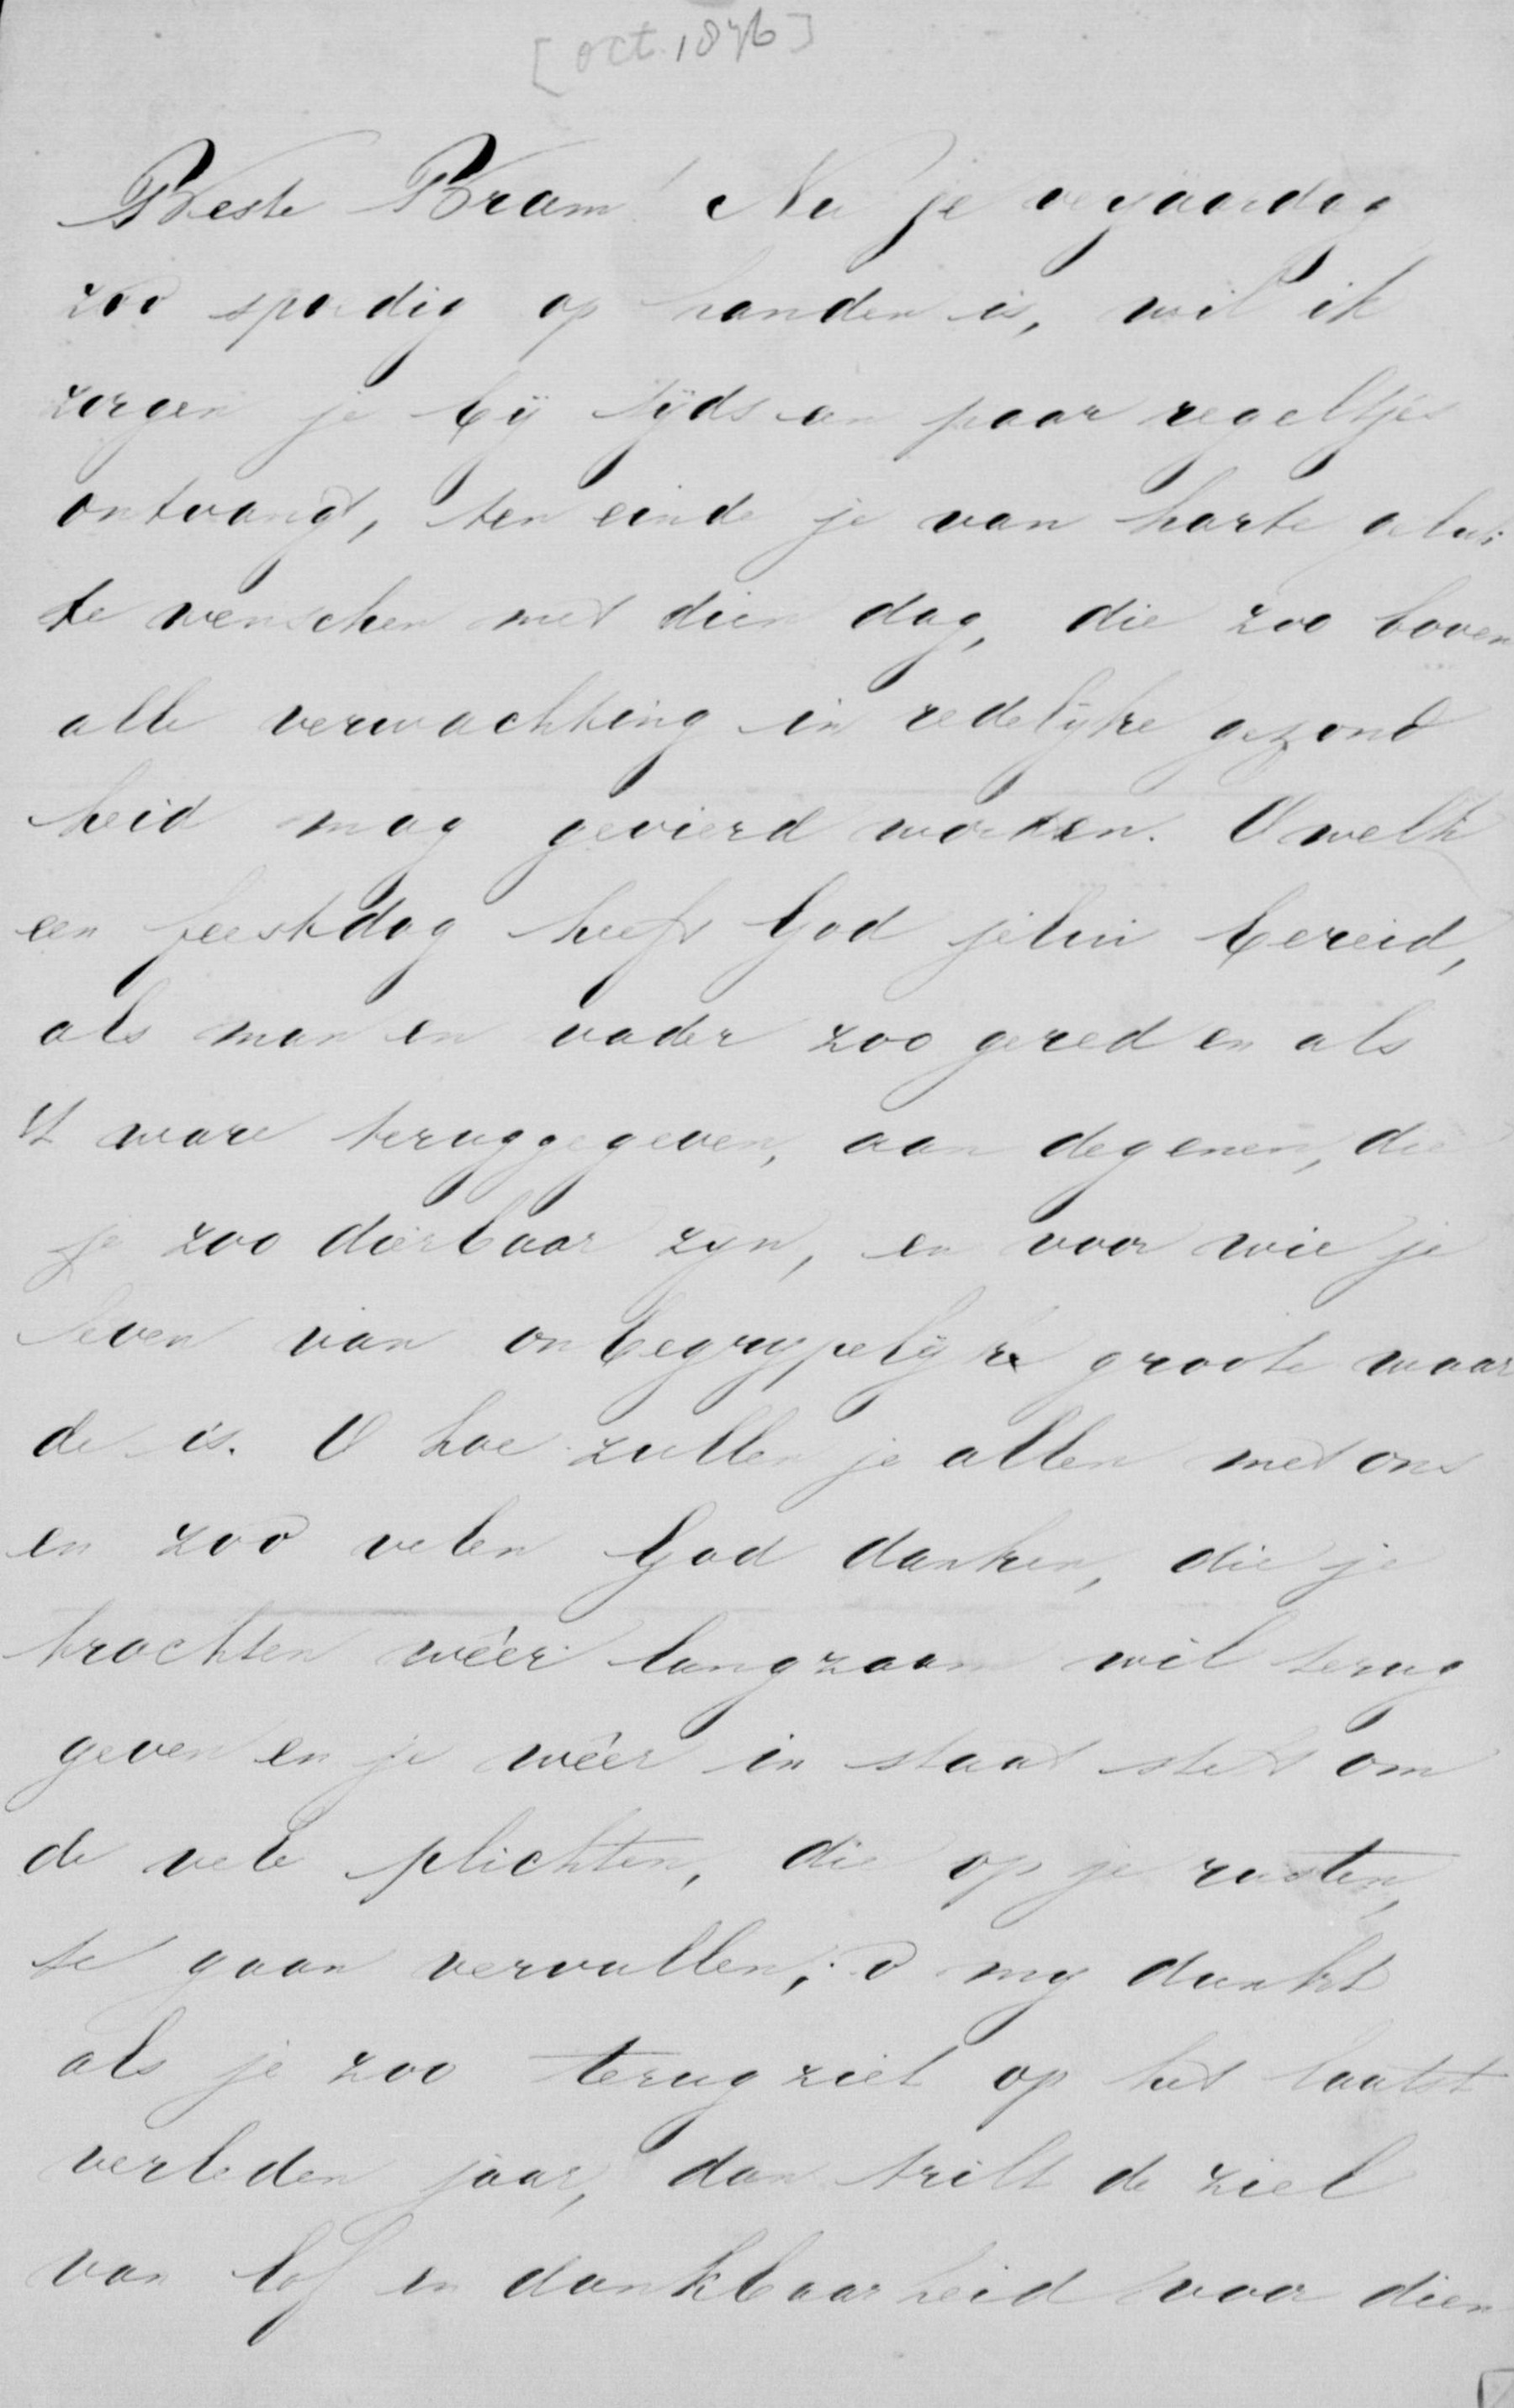 [oct. 1876]
Beste Bram! Nu je verjaardag
zoo spoedig op handen is, wil ik
zorgen je bij tijds een paar regeltjes
ontvangt, ten einde je van harte geluk
te wenschen met dien dag, die zoo boven
alle verwachting in redelijke gezond
heid mag gevierd worden. O welk
een feestdag heeft God jelui bereid,
als man en vader zoo gered en als
't ware teruggegeven, aan degenen, die
je zoo dierbaar zijn, en voor wie je
leven van onbegrijpelijke groote waar
de is. O hoe zullen je allen met ons
en zoo velen God danken, die je
krachten wéér langzaam wil terug
geven en je wéér in staat stelt om
de vele plichten, die op je rusten,
te gaan vervullen; o my dunkt
als je zoo terug ziet op het laatst
verleden jaar, dan trilt de ziel
van lof en dankbaarheid voor dien